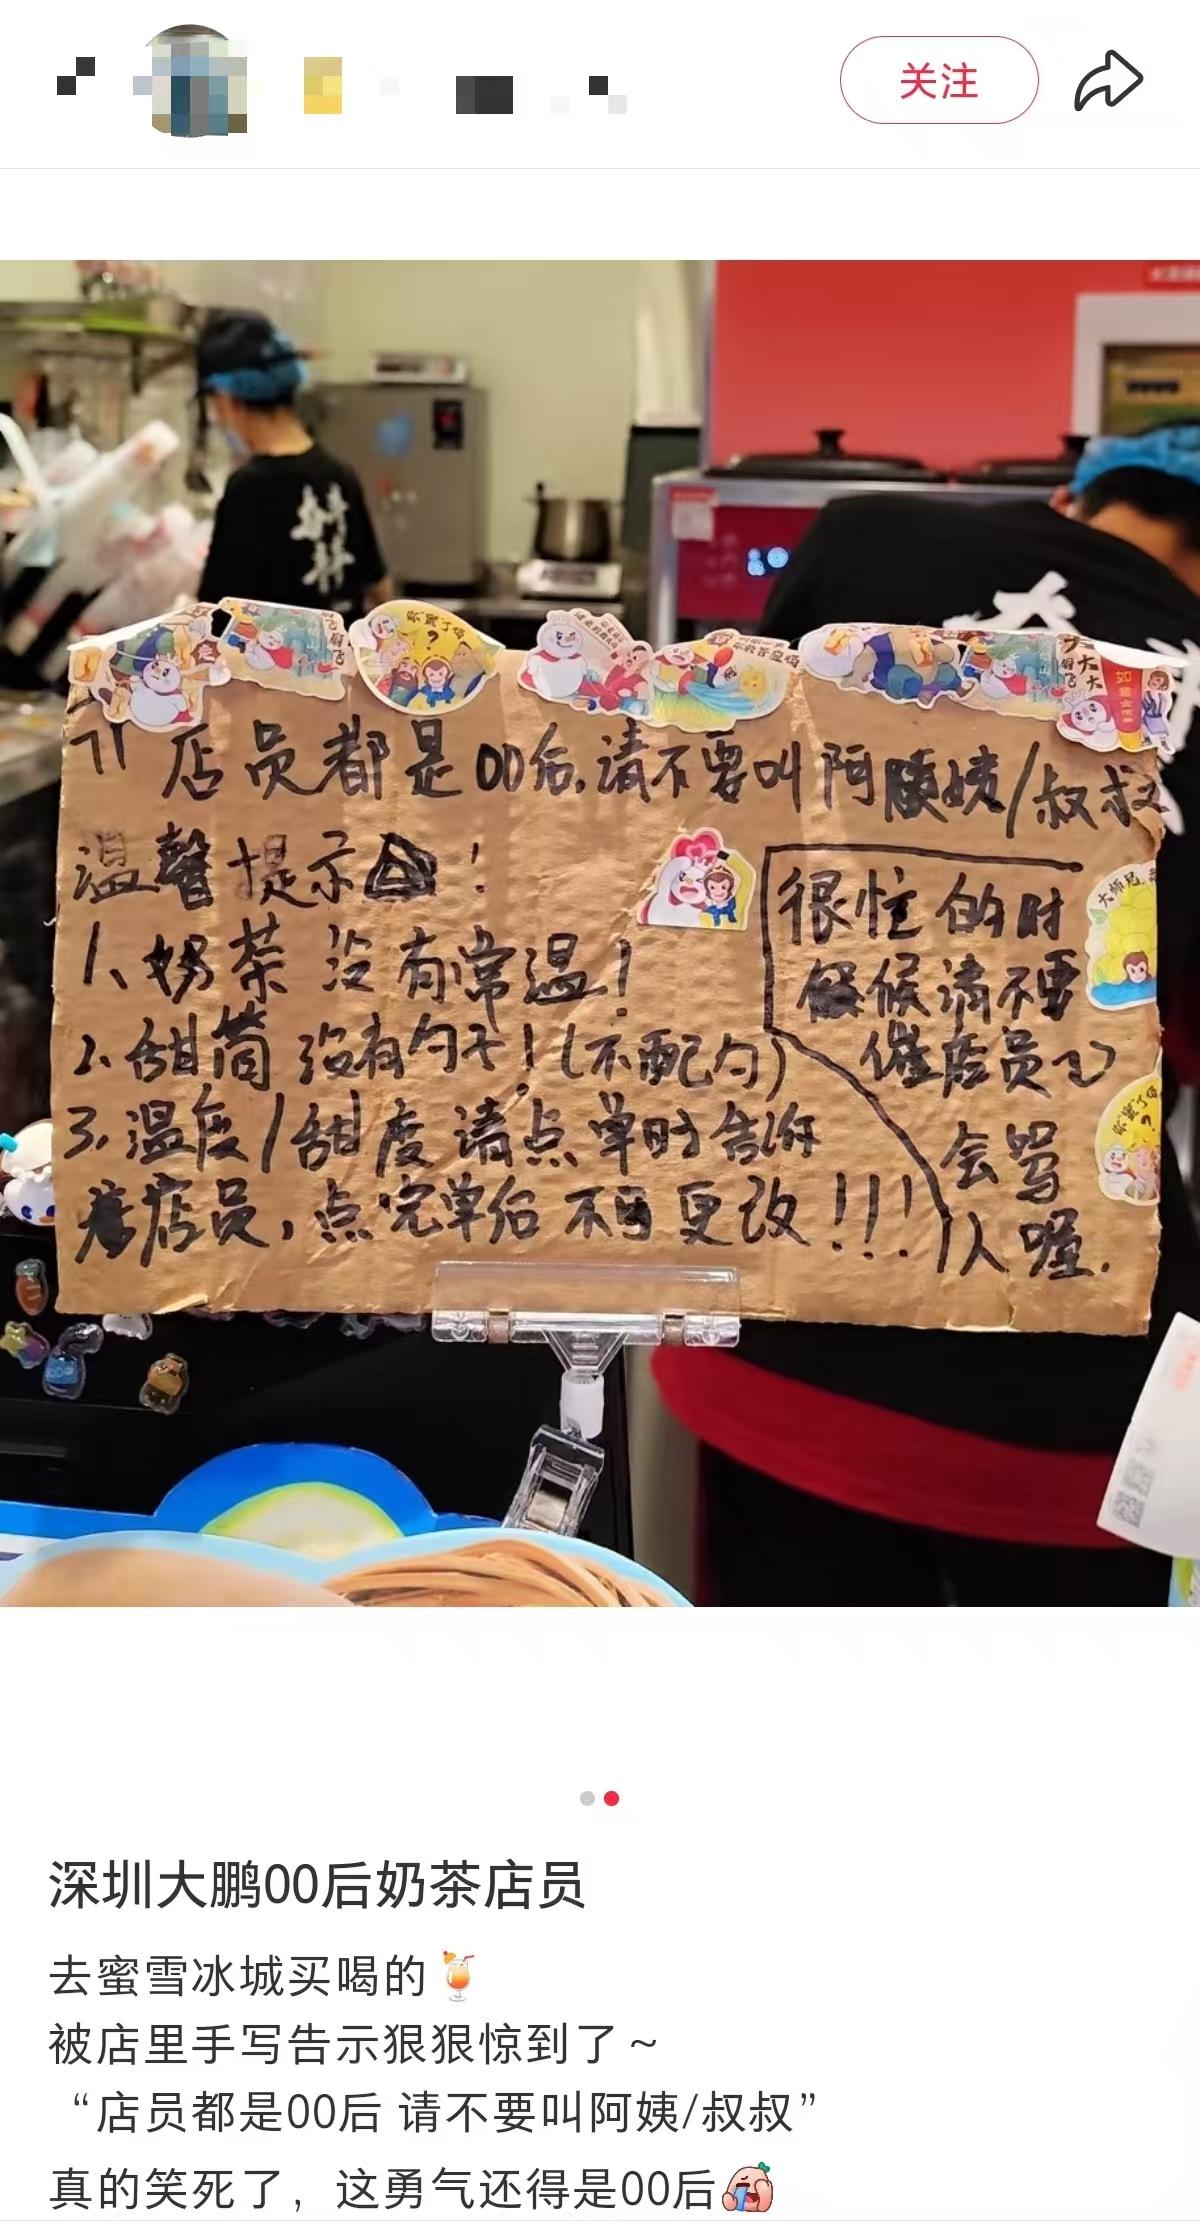 关注
店员都是00后,请不要叫阿姨/叔叔
温馨提示!
1、奶茶没有常温!
2.甜筒没有勺子!(不配勺)
3.温度/甜度请点单时告诉
店员,点完单后不可更改!!!
很忙的时
候请不要
催店员
会骂
人喔.
深圳大鹏00后奶茶店员
去蜜雪冰城买喝的🍹
被店里手写告示狠狠惊到了~
“店员都是00后 请不要叫阿姨/叔叔”
真的笑死了，这勇气还得是00后